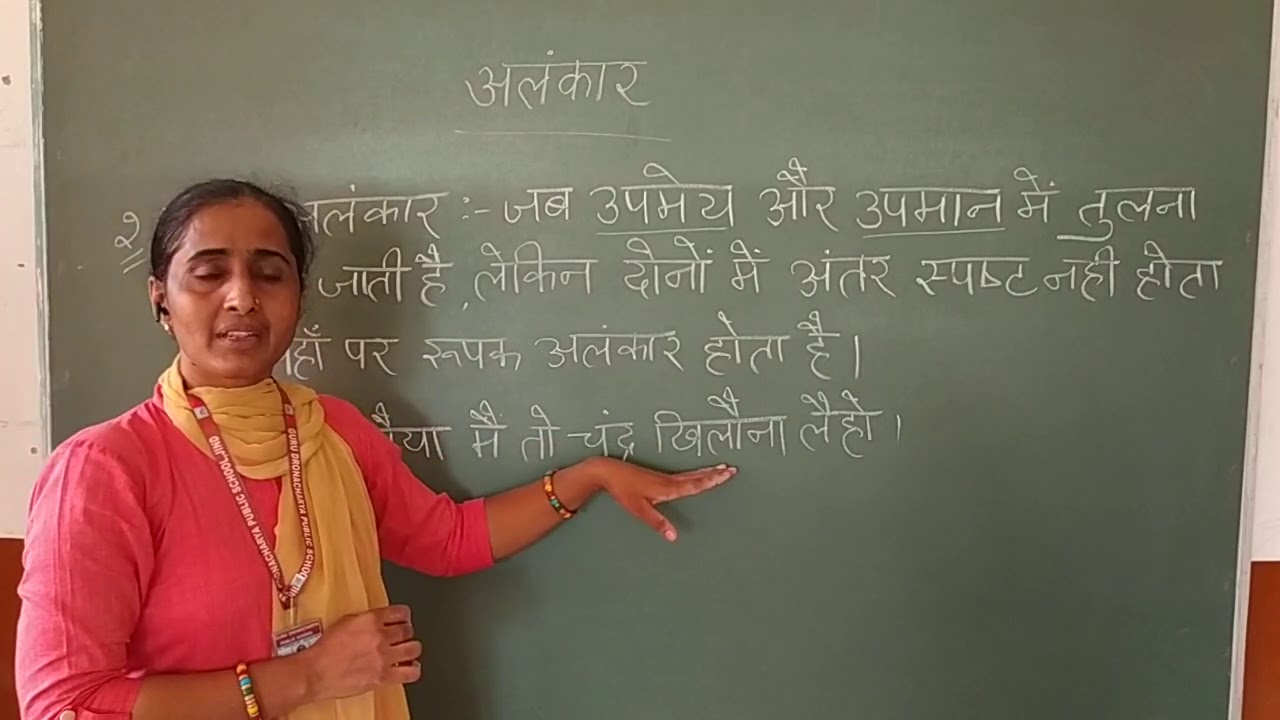 अलंकार
२ अलंकार :- जब उपमेय और उपमान में तुलना
जाती है, लेकिन दोनों में अंतर स्पष्ट नही होता
पर रूपक अलंकार होता है।
मैं तो चंद्र खिलौना लैहों।
GURU DRONACHARYA PUBLIC SCHOOL
DRONACHARYA PUBLIC SCHOOL, JIND